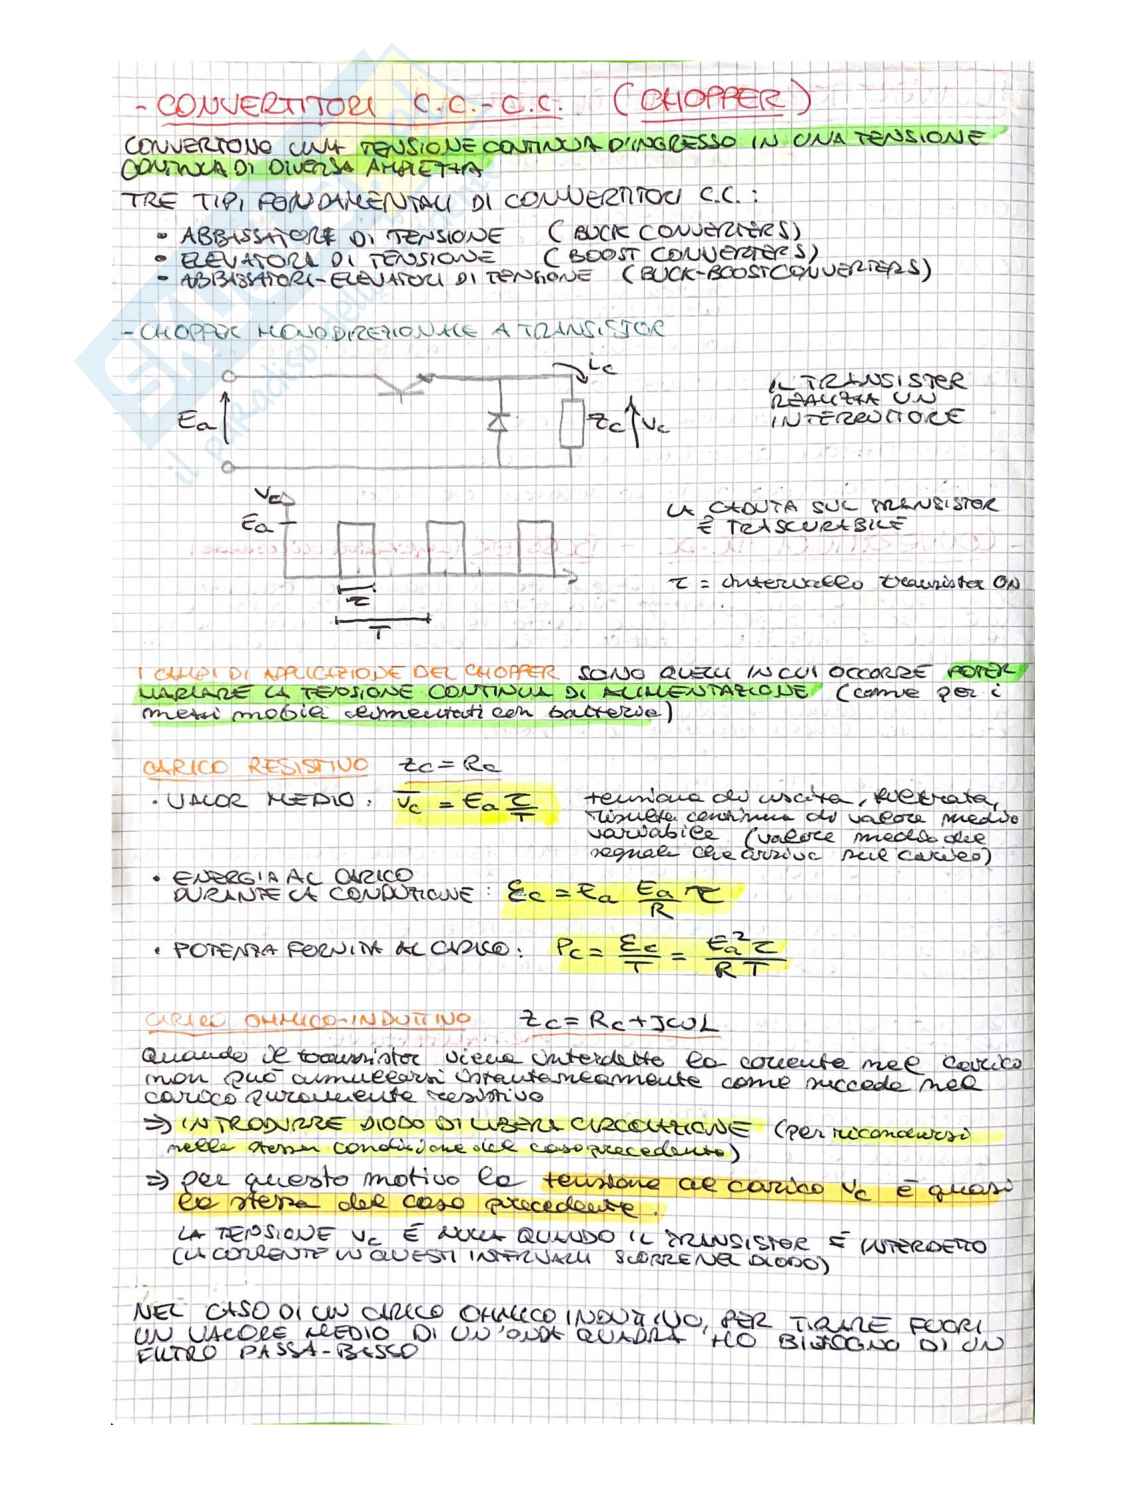 - CONVERTITORI C.C.-C.C. (CHOPPER)
CONVERTONO UNA TENSIONE CONTINUA D'INGRESSO IN UNA TENSIONE
CONTINUA DI DIVERSA AMPIEZZA
TRE TIPI FONDAMENTALI DI CONVERTITORI C.C.:
• ABBASSATORE DI TENSIONE (BUCK CONVERTERS)
• ELEVATORI DI TENSIONE (BOOST CONVERTERS)
• ABBASSATORI-ELEVATORI DI TENSIONE (BUCK-BOOST CONVERTERS)
- CHOPPER MONODIREZIONALE A TRANSISTOR
ic
Ea
Zc
Vc
IL TRANSISTER
REALIZZA UN
INTERRUTTORE
Vc
Ea
τ
T
LA CADUTA SUL TRANSISTOR
È TRASCURABILE
τ = intervallo transistor ON
I CAMPI DI APPLICAZIONE DEL CHOPPER SONO QUELLI IN CUI OCCORRE POTER
VARIARE LA TENSIONE CONTINUA DI ALIMENTAZIONE (come per i
mezzi mobili alimentati con batterie)
CARICO RESISTIVO Zc = Rc
• VALOR MEDIO: V̅c = Ea τ/T
tensione di uscita, filtrata,
risulta continua di valore medio
variabile (valore medio del
segnale che arriva sul carico)
• ENERGIA AL CARICO
DURANTE LA CONDUZIONE: Ɛc = Ea Ea/R τ
• POTENZA FORNITA AL CARICO: Pc = Ɛc/T = Ea²τ/RT
CARICO OHMICO-INDUTTIVO Zc = Rc + JωL
Quando il transistor viene interdetto la corrente nel carico
non può annullarsi istantaneamente come succede nel
carico puramente resistivo
⇒ INTRODURRE DIODO DI LIBERA CIRCOLAZIONE (per ricondursi
nelle stesse condizione del caso precedente)
⇒ per questo motivo la tensione al carico Vc è quasi
la stessa del caso precedente.
LA TENSIONE Vc È NULLA QUANDO IL TRANSISTOR È INTERDETTO
(LA CORRENTE IN QUESTI INTERVALLI SCORRE NEL DIODO)
NEL CASO DI UN CARICO OHMICO INDUTTIVO, PER TIRARE FUORI
UN VALORE MEDIO DI UN'ONDA QUADRA HO BISOGNO DI UN
FILTRO PASSA-BASSO